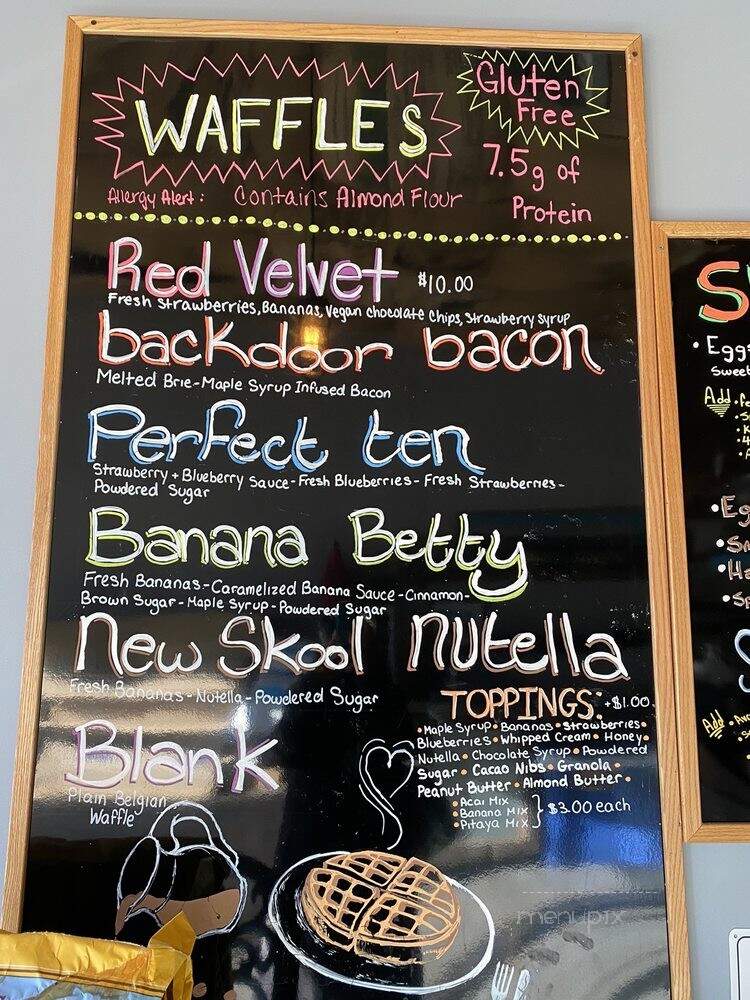 WAFFLES
Gluten
Free
7.5g of
Protein
Allergy Alert: Contains Almond Flour
Red Velvet $10.00
Fresh Strawberries, Bananas, Vegan chocolate chips, Strawberry syrup
backdoor bacon
Melted Brie-Maple Syrup Infused Bacon
Perfect ten
Strawberry + Blueberry Sauce-Fresh Blueberries-Fresh Strawberries-
Powdered Sugar
Banana Betty
Fresh Bananas-Caramelized Banana Sauce-Cinnamon-
Brown Sugar-Maple Syrup-Powdered Sugar
New Skool Nutella
Fresh Bananas-Nutella-Powdered Sugar
TOPPINGS: +$1.00
•Maple Syrup•Bananas•Strawberries•
Blueberries•Whipped Cream•Honey•
Nutella•Chocolate Syrup•Powdered
Sugar•Cacao Nibs•Granola•
Peanut Butter•Almond Butter•
•Acai Mix
•Banana Mix } $3.00 each
•Pitaya Mix
Blank
Plain Belgian
Waffle
menupix
S
• Egg
Sweet
Add
•Eg
Add